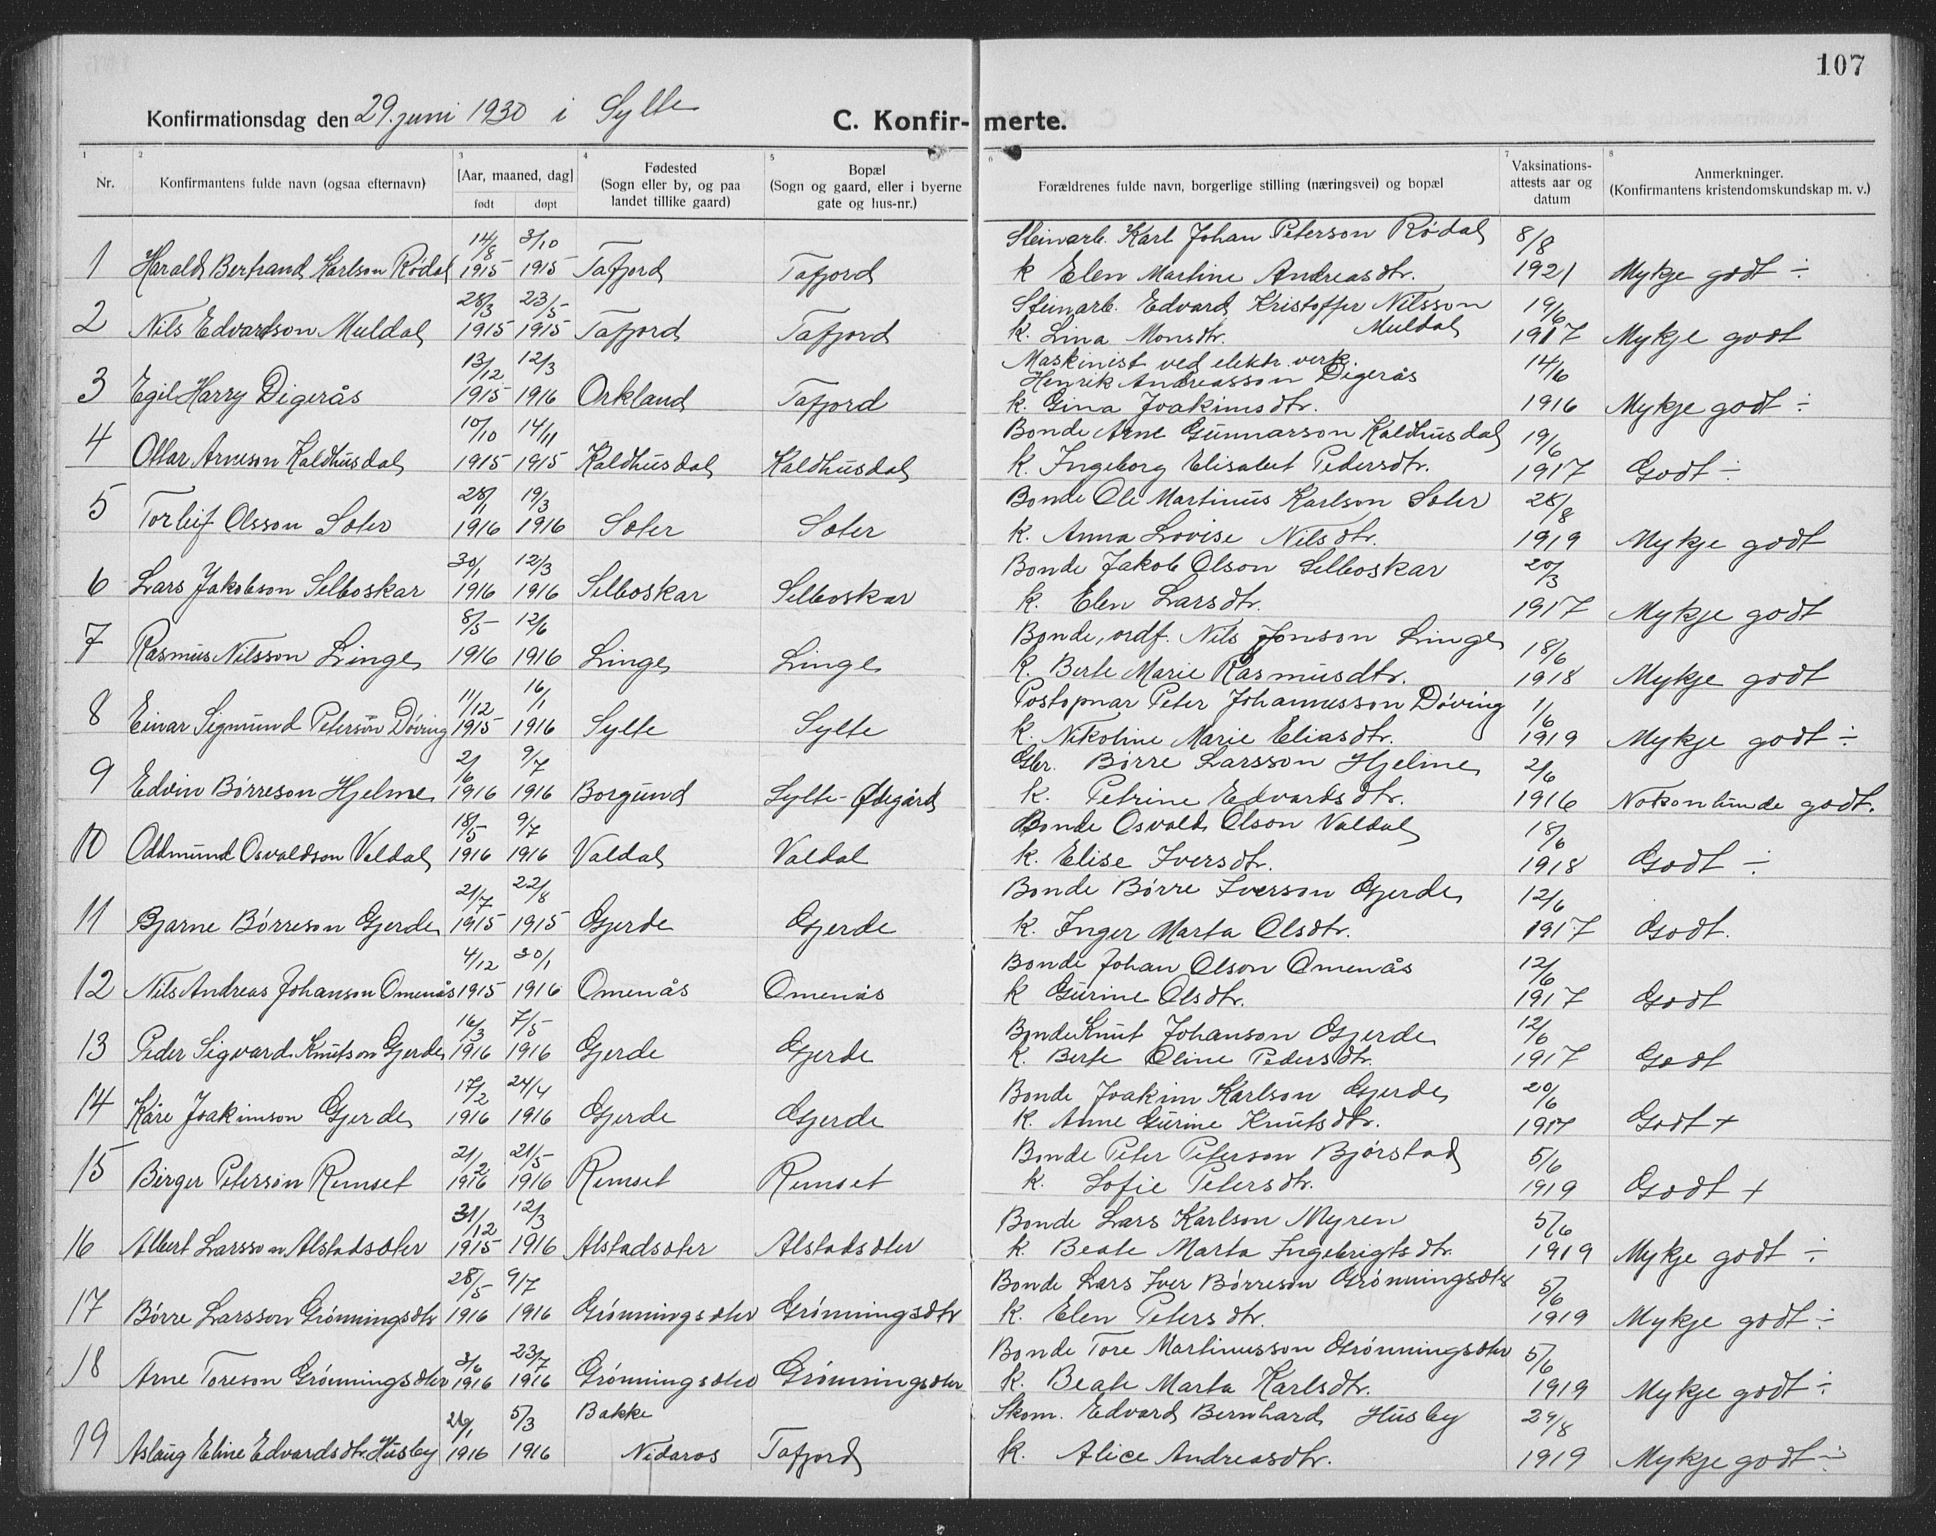 107
Konfirmationsdag den 29. juni 1930 i Sylte C. Konfir- merte.
1 2 3 4 5 6 7 8
Nr. Konfirmantens fulde navn (ogsaa efternavn) [Aar, maaned, dag] født døpt Fødested (Sogn eller by, og paa landet tillike gaard) Bopæl (Sogn og gaard, eller i byerne gate og hus-nr.) Forældrenes fulde navn, borgerlige stilling (næringsvei) og bopæl Vaksinations-attests aar og datum Anmerkninger. (Konfirmantens kristendomskundskap m. v.)
1 Harald Bertrand Karlson Rødal 14/8 1915 3/10 1915 Tafjord Tafjord Steinarb. Karl Johan Peterson Rødal 8/8
k Elen Martine Andreasdtr. 1921 Mykje godt ÷
2 Nils Edvardson Muldal 28/3 1915 23/5 1915 Tafjord Tafjord Steinarb. Edvard Kristoffer Nilsson Muldal 19/6
k. Lina Monsdtr. 1917 Mykje godt
3 Egil Harry Digerås 13/12 1915 12/3 1916 Orkland Tafjord Maskinist ved elektr. verk.
Henrik Andreasson Digerås 14/6
k. Gina Joakimsdtr. 1916 Mykje godt ÷
4 Ottar Arneson Kaldhusdal 10/10 1915 14/11 1915 Kaldhusdal Kaldhusdal Bonde Arne Gunnarson Kaldhusdal 19/6
k. Ingeborg Elisabet Pedersdtr. 1917 Godt ÷
5 Torleif Olsson Sæter 28/1 1916 19/3 1916 Sæter Sæter Bonde Ole Martinus Karlson Sæter 28/8
k. Anna Lovise Nilsdtr. 1919 Mykje godt
6 Lars Jakobson Selboskar 30/1 1916 12/3 1916 Selboskar Selboskar Bonde Jakob Olson Selboskar 20/3
k. Elen Larsdtr. 1917 Mykje godt
7 Rasmus Nilsson Linge 8/5 1916 12/6 1916 Linge Linge Bonde, ordf. Nils Jonson Linge 18/6
k. Berte Marie Rasmusdtr. 1918 Mykje godt
8 Einar Sigmund Peterson Døving 11/12 1915 16/1 1916 Sylte Sylte Postopnar Peter Johannesson Døving 1/6
k. Nikoline Marie Eliasdtr. 1919 Mykje godt ÷
9 Edvin Børreson Hjelme 2/6 1916 9/7 1916 Borgund Sylte - Ødegård Gbr. Børre Larsson Hjelme 2/6
k. Petrine Edvardsdtr. 1916 Nokonlunde godt.
10 Oddmund Osvaldson Valdal 18/5 1916 9/7 1916 Valdal Valdal Bonde Osvald Olson Valdal 18/6
k. Elise Iversdtr. 1918 Godt ÷
11 Bjarne Børreson Gjerde 21/7 1915 22/8 1915 Gjerde Gjerde Bonde Børre Iverson Gjerde 12/6
k. Inger Marta Olsdtr. 1917 Godt.
12 Nils Andreas Johanson Omenås 4/12 1915 30/1 1916 Omenås Omenås Bonde Johan Olson Omenås 12/6
k Gurine Olsdtr. 1917 Godt
13 Peder Sigvard Knutson Gjerde 16/3 1916 7/5 1916 Gjerde Gjerde Bonde Knut Johanson Gjerde 12/6
k. Berte Oline Pedersdtr. 1917 Godt
14 Kåre Joakimson Gjerde 17/2 1916 24/4 1916 Gjerde Gjerde Bonde Joakim Karlson Gjerde 20/6
k. Anne Gurine Knutsdtr. 1917 Godt +
15 Birger Peterson Remset 21/2 1916 21/5 1916 Remset Remset Bonde Peter Peterson Bjørstad 5/6
k. Sofie Petersdtr. 1919 Godt +
16 Albert Larsson Alstadsæter 31/12 1915 12/3 1916 Alstadsæter Alstadsæter Bonde Lars Karlson Myren 5/6
k. Beate Marta Ingebrigtsdtr. 1919 Mykje godt ÷
17 Børre Larsson Grønningsætr 28/5 1916 9/7 1916 Grønningsæter Grønningsætr Bonde Lars Iver Børreson Grønningsæter 5/6
k. Elen Petersdtr. 1919 Mykje godt ÷
18 Arne Toreson Grønningsæter 3/6 1916 23/7 1916 Grønningsæter Grønningsæter Bonde Tore Martinusson Grønningsæter 5/6
k. Beate Marta Karlsdtr. 1919 Mykje godt ÷
19 Aslaug Eline Edvardsdtr. Husby 1916 5/3 1916 Bakke Nidaros Tafjord Skom. Edvard Bernhard Husby 29/8
k. Alice Andreasdtr. 1919 Mykje godt ÷